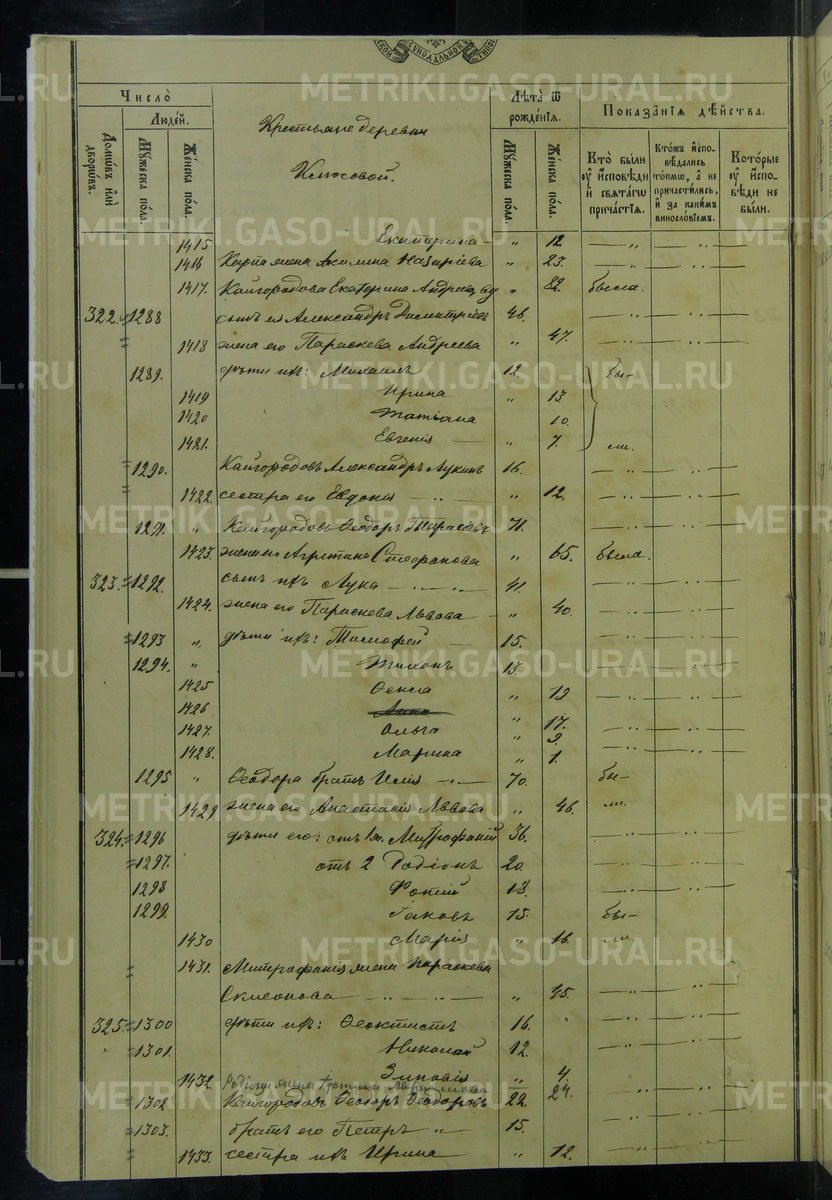 METRIKI.GASO-URAL.RU
Число̀
Люде́й.
Домѡ́въ и҆лѝ дворѡ́въ.
Мꙋ́жеска по́ла.
Же́нска по́ла.
Крестьяне деревни
Ключовой.
Лѣ́та ѿ рожде́нїѧ.
Мꙋ́жеска по́ла.
Же́нска по́ла.
Показа̑нїѧ дѣ́йства.
Кто̀ бы́ли ᲂу҆ и҆́сповѣди и҆ свѧта́гѡ прича́стїѧ.
Кто́жъ и҆сповѣ́дались то́кмѡ, а҆ не причасти́лись, и҆ за каки́мъ винослові́емъ.
Кото́рые ᲂу҆ и҆́сповѣди не бы́ли.
1415 Екатерина - " 12
1416 Карпа жена Акилина Назарiева " 23.
1417. Кайгородова Екатерина Андреева, вд " 82. была.
322. 1288 сынъ ея Александръ Димитрiевъ 46.
1418 жена его Параскева Андреева " 47.
1289. дѣти ихъ: Михаилъ 12. бы-
1419 Ирина " 13
1420 Татiана 10.
1421. Евгенiя " 7. ли.
1290. Кайгородовъ Александръ Лукинъ 16.
1422. сестра его Евдокiя " 12.
1291. " Кайгородовъ Ѳеодоръ Тарасовъ 71.
1423. жена его Агрипина Стефанова " 65. была.
323. 1292. сынъ ихъ Лука 41.
1424. жена его Параскева Львова " 40.
1293 " дѣти ихъ: Тимофей 15.
1294. " Тихонъ 13.
1425 Ѳекла " 19
1426 Анна "
1427. Ольга " 17.
9.
1428. Марина " 1.
1295 " Ѳеодора братъ Илiя 70. бы-
1429 жена его Анастасiя Львова " 46. ли.
324. 1296 дѣти его: отъ 1 ж. Митрофанiй 36.
1297. отъ 2 Родiонъ 20.
1298 Фотiй 18.
1299. Iаковъ 15. бы-
1430 Марiя " 16. ли
1431. Митрофанiя жена Параскева
Симеонова " 35.
325. 1300 дѣти ихъ: Ѳеоктистъ 16.
1301. Николай 12.
Зиновiя " 4.
1432 Родiона жена 24.
1302 Кайгородовъ Ѳеодоръ Ѳеодоровъ 22.
1303. братъ его Петръ " 15.
1433. сестра ихъ Ирина " 12.